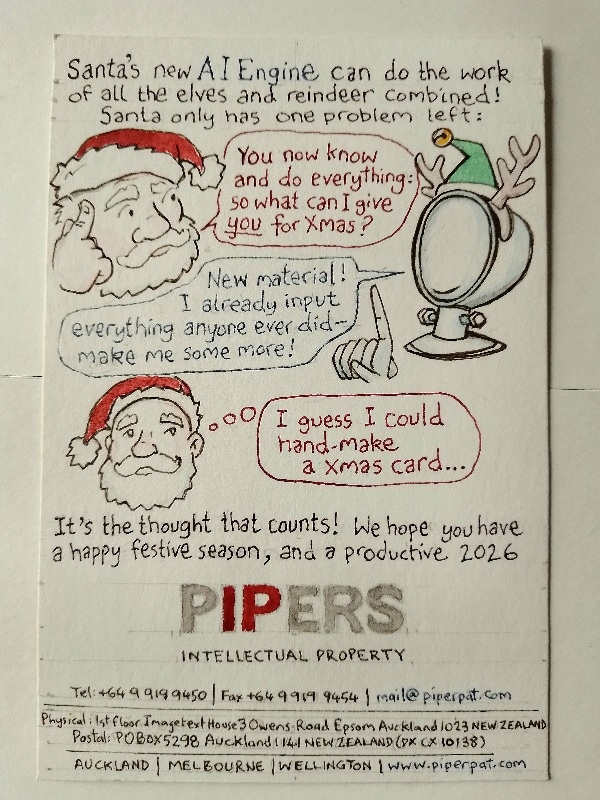 Santa's new AI Engine can do the work
of all the elves and reindeer combined!
Santa only has one problem left:
You now know
and do everything:
so what can I give
you for Xmas?
New material!
I already input
everything anyone ever did-
make me some more!
I guess I could
hand-make
a xmas card...
It's the thought that counts! We hope you have
a happy festive season, and a productive 2026
PIPERS
INTELLECTUAL PROPERTY
Tel: +64 9 919 9450 | Fax +64 9 919 9454 | mail@piperpat.com
Physical: 1st floor Imagetext House 3 Owens Road Epsom Auckland 1023 NEW ZEALAND
Postal: PO BOX 5298 Auckland 1141 NEW ZEALAND (DX CX 10138)
AUCKLAND | MELBOURNE | WELLINGTON | www.piperpat.com